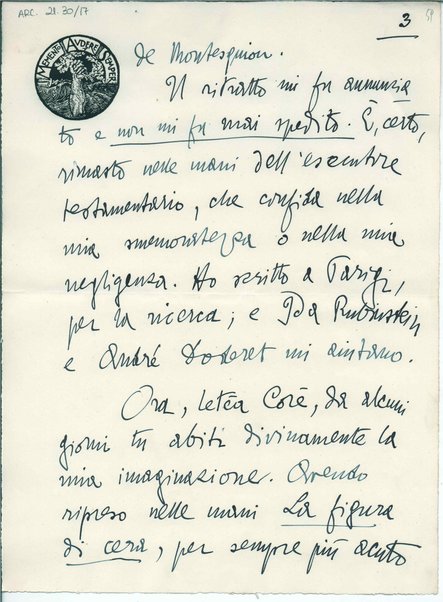 ARC. 21.30/17
3
MEMENTO AVDERE SEMPER
de Montesquiou.
Il ritratto mi fu annunzia
to e non mi fu mai spedito. È, certo,
rimasto nelle mani dell'esecutore
testamentario, che confida nella
mia smemoratezza o nella mia
negligenza. Ho scritto a Parigi,
per la ricerca; e Ida Rubinstein
e André Doderet mi aiutano.
Ora, letèa Corè, da alcuni
giorni tu abiti divinamente la
mia imaginazione. Avendo
ripreso nelle mani La figura
di cera, per sempre più acuto